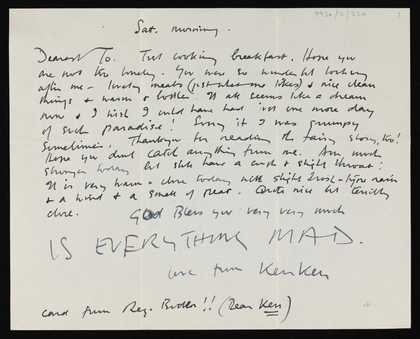 Sat. morning.
Dearest Jo. Just cooking breakfast. Hope you
are not too lonely. You were so wonderful looking
after me – lovely meals (just what one likes) & nice clean
things & warm & bottle. It all seems like a dream
now & I wish I could have had just one more day
of such paradise! Sorry if I was grumpy
sometimes. Thankyou for reading the fairy story, too!
Hope you dont catch anything from me. Am much
stronger today but still have a cough & slight throat.
It is very warm & close today with slight rain
& a wind & a smell of peat. Quite nice but terribly
close.
God Bless you very very much
IS EVERYTHING MAD.
love from KenKen
card from Reg. Butler!! (Dear Ken)